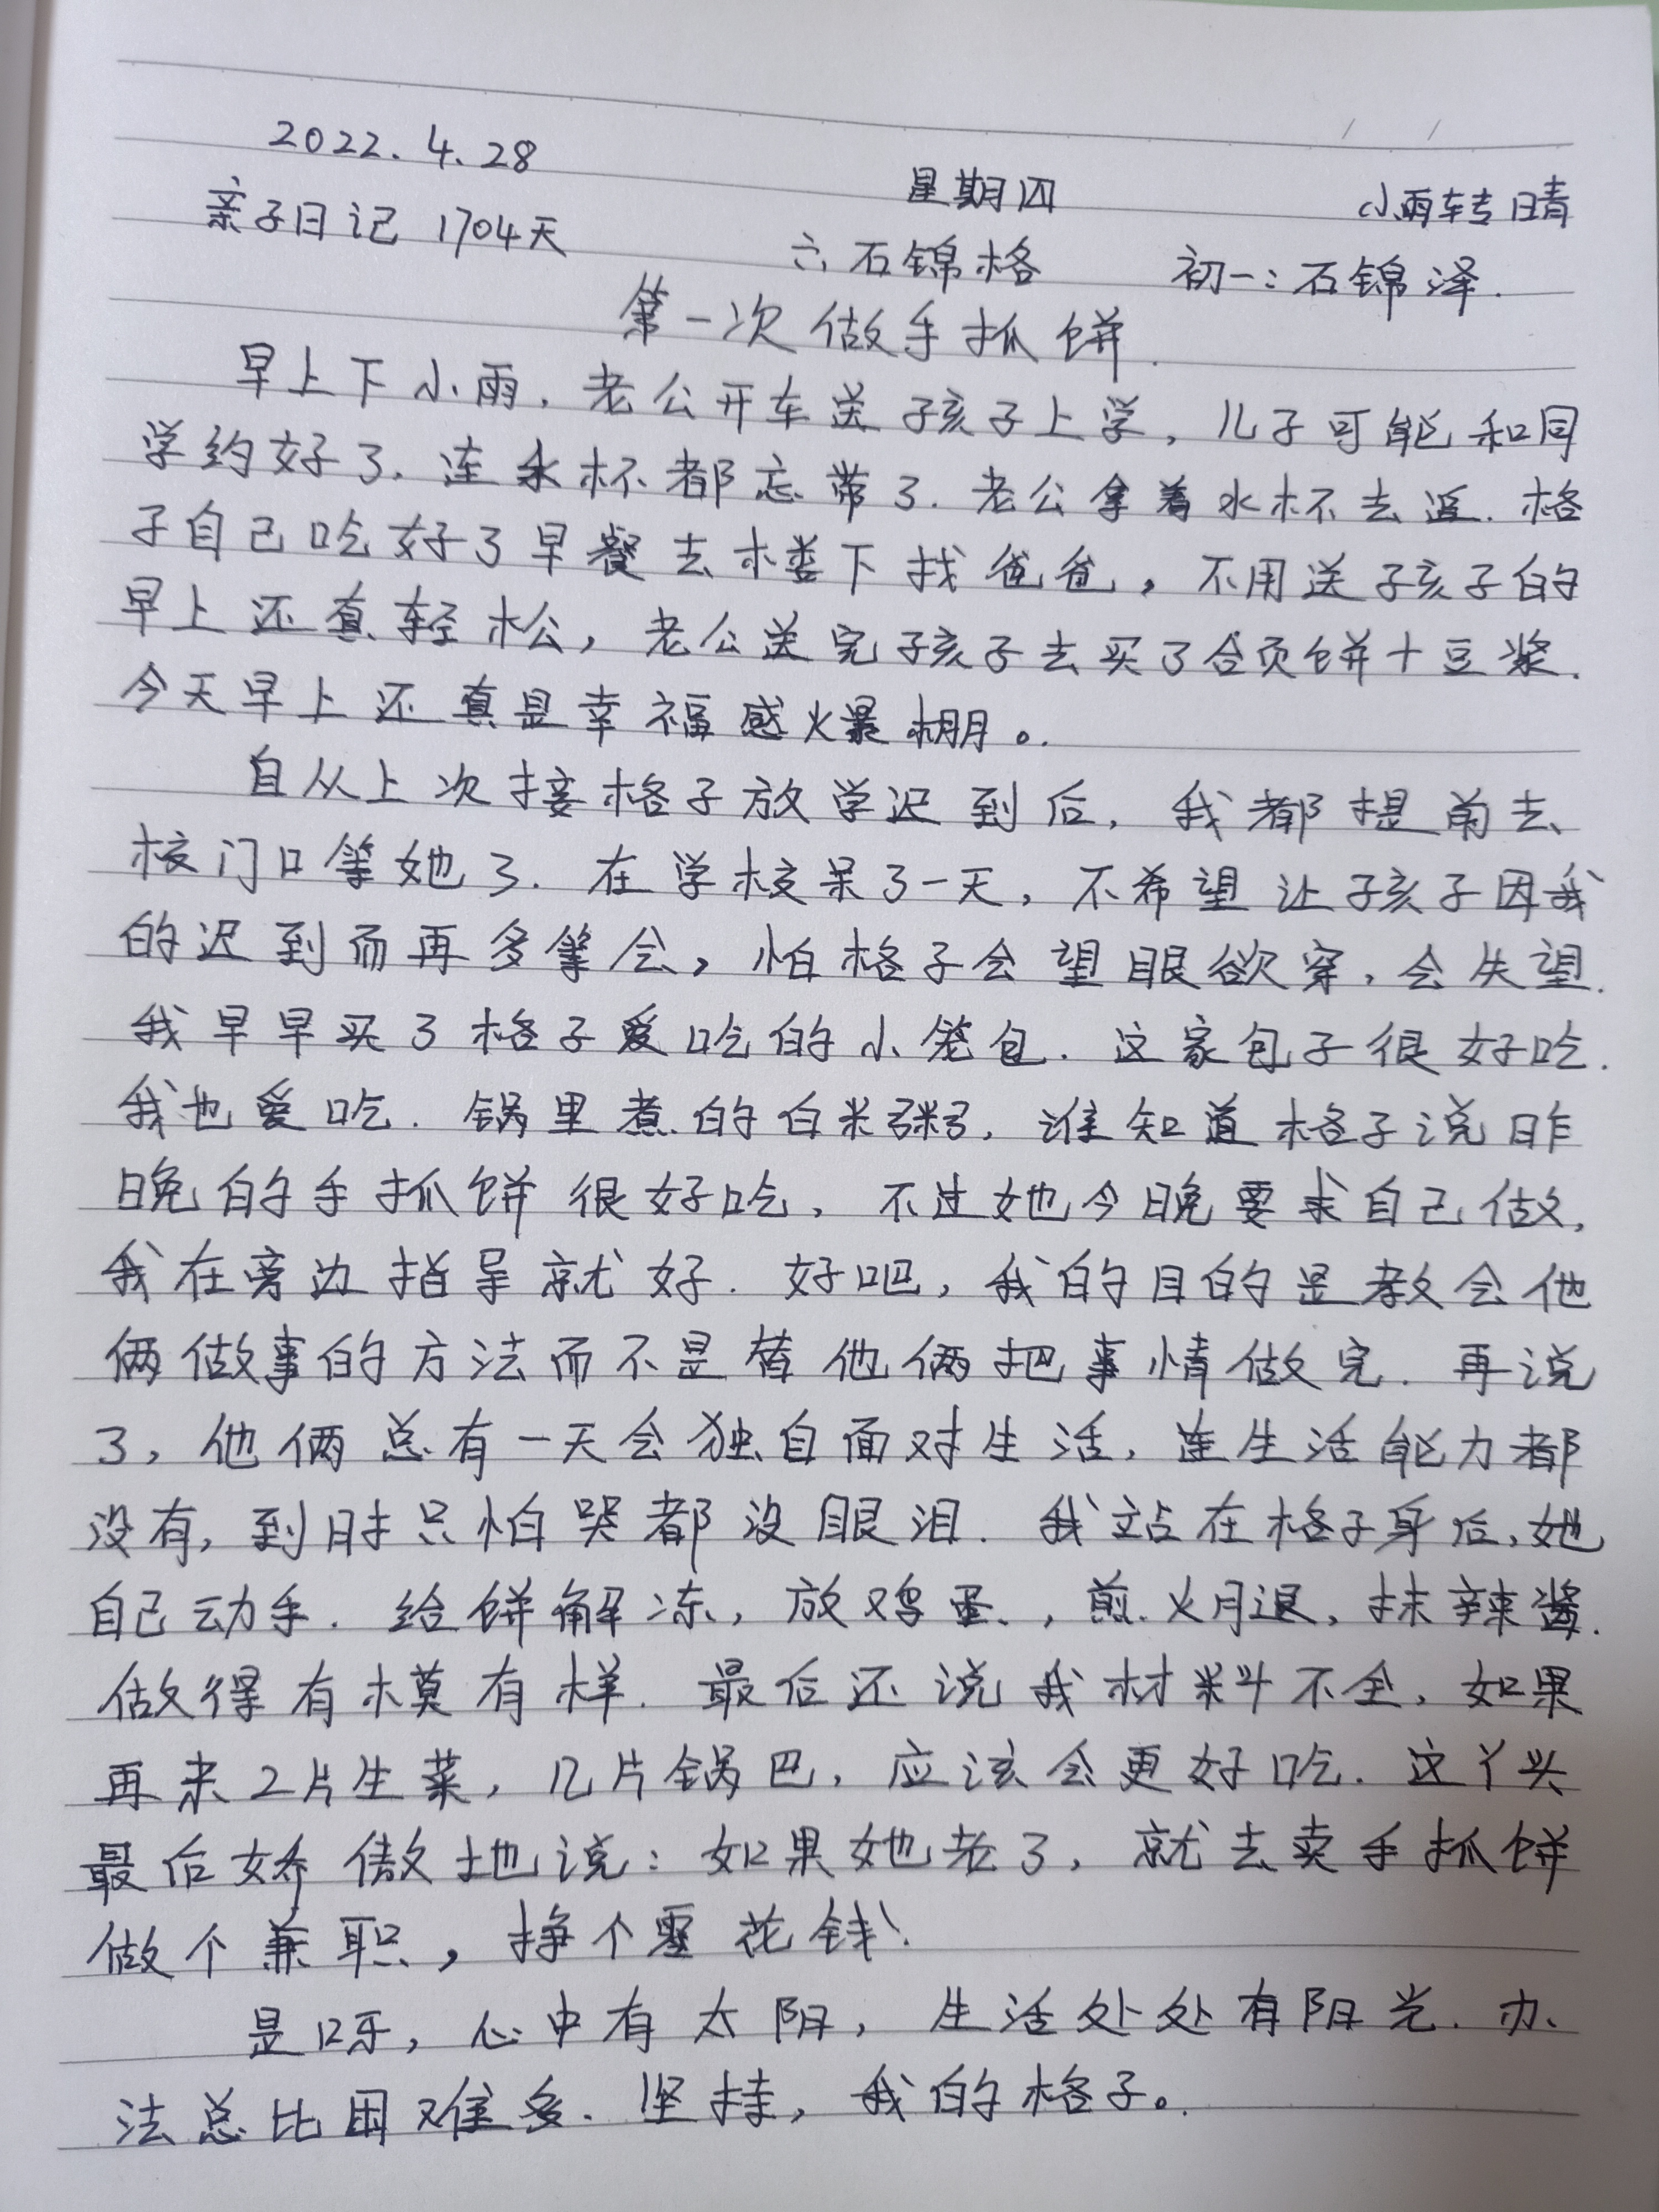 2022.4.28 星期四 小雨转晴
亲子日记 1704天 六石锦格 初一:石锦泽.
第一次做手抓饼.
早上下小雨.老公开车送孩子上学,儿子可能和同
学约好了.连水杯都忘带了.老公拿着水杯去追.格
子自己吃好了早餐去楼下找爸爸,不用送孩子的
早上还真轻松,老公送完孩子去买了合页饼+豆浆.
今天早上还真是幸福感火爆棚。
自从上次接格子放学迟到后,我都提前去
校门口等她了.在学校呆了一天,不希望让孩子因我
的迟到而再多等会,怕格子会望眼欲穿,会失望.
我早早买了格子爱吃的小笼包.这家包子很好吃.
我也爱吃.锅里煮的白米粥,谁知道格子说昨
晚的手抓饼很好吃,不过她今晚要求自己做,
我在旁边指导就好.好吧,我的目的是教会他
俩做事的方法而不是替他俩把事情做完.再说
了,他俩总有一天会独自面对生活,连生活能力都
没有,到时只怕哭都没眼泪.我站在格子身后,她
自己动手.给饼解冻,放鸡蛋,煎火腿,抹辣酱.
做得有模有样.最后还说我材料不全,如果
再来2片生菜,几片锅巴,应该会更好吃.这丫头
最后娇傲地说:如果她老了,就去卖手抓饼
做个兼职,挣个零花钱!
是呀,心中有太阳,生活处处有阳光.办
法总比困难多.坚持,我的格子。